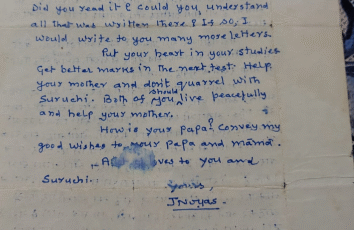 Did you read it & could you understand
all that was written there? If so, I
would write to you many more letters.
Put your heart in your studies
Get better marks in the next test. Help
your mother and dont quarrel with
Suruchi. Both of you should live peacefully
and help your mother.
How is your papa? Convey my
good wishes to your papa and mama.
to you and
Suruchi.
Yours,